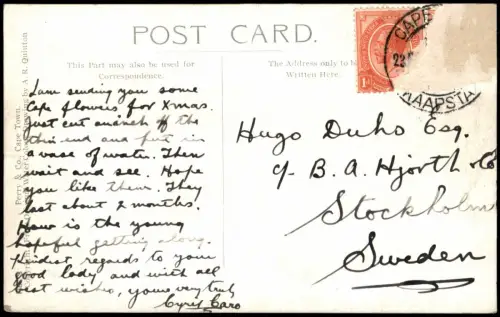 POST CARD.
This Part may also be used for
Correspondence.
The Address only to be
Written Here.
CAPE
KAAPSTA
I am sending you some
Cape flowers for Xmas.
Just cut an inch off the
thin end and put in
a vase of water. Then
wait and see. Hope
you like them. They
last about 2 months.
How is the young
hopeful getting along.
Kindest regards to your
good lady and with all
best wishes, yours very truly
Cyril Caro
Hugo Duhs Esq.
c/- B. A. Hjorth & Co
Stockholm
Sweden
Perry & Co., Cape Town.
Drawing by A. R. Quinton